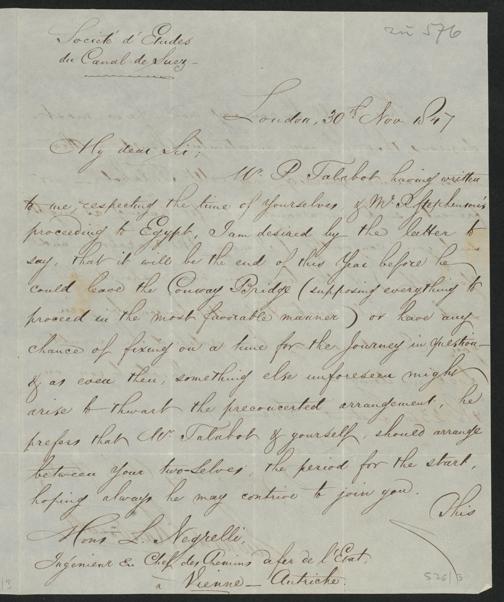 Société d'Etudes
zu 576
du Canal de Suez -
London, 30th Nov 1847
My dear Sir;
Mr P. Talabot having written
to me respecting the time of yourselves & Mr R. Stephenson's
proceeding to Egypt, I am desired by the latter to
say, that it will be the end of this Year before he
could leave the Conway Bridge (supposing everything to
proceed in the most favorable manner) or have any
chance of fixing on a time for the Journey in question -
& as even then, something else unforeseen might
arise to thwart the preconcerted arrangement, he
prefers that Mr Talabot & yourself, should arrange
between Your two-selves, the period for the start,
hoping always he may contrive to join you.
This
Monsr L. Negrelli,
Ingénieur en Chef des Chemins de fer de l'Etat.
a Vienne - Autriche.